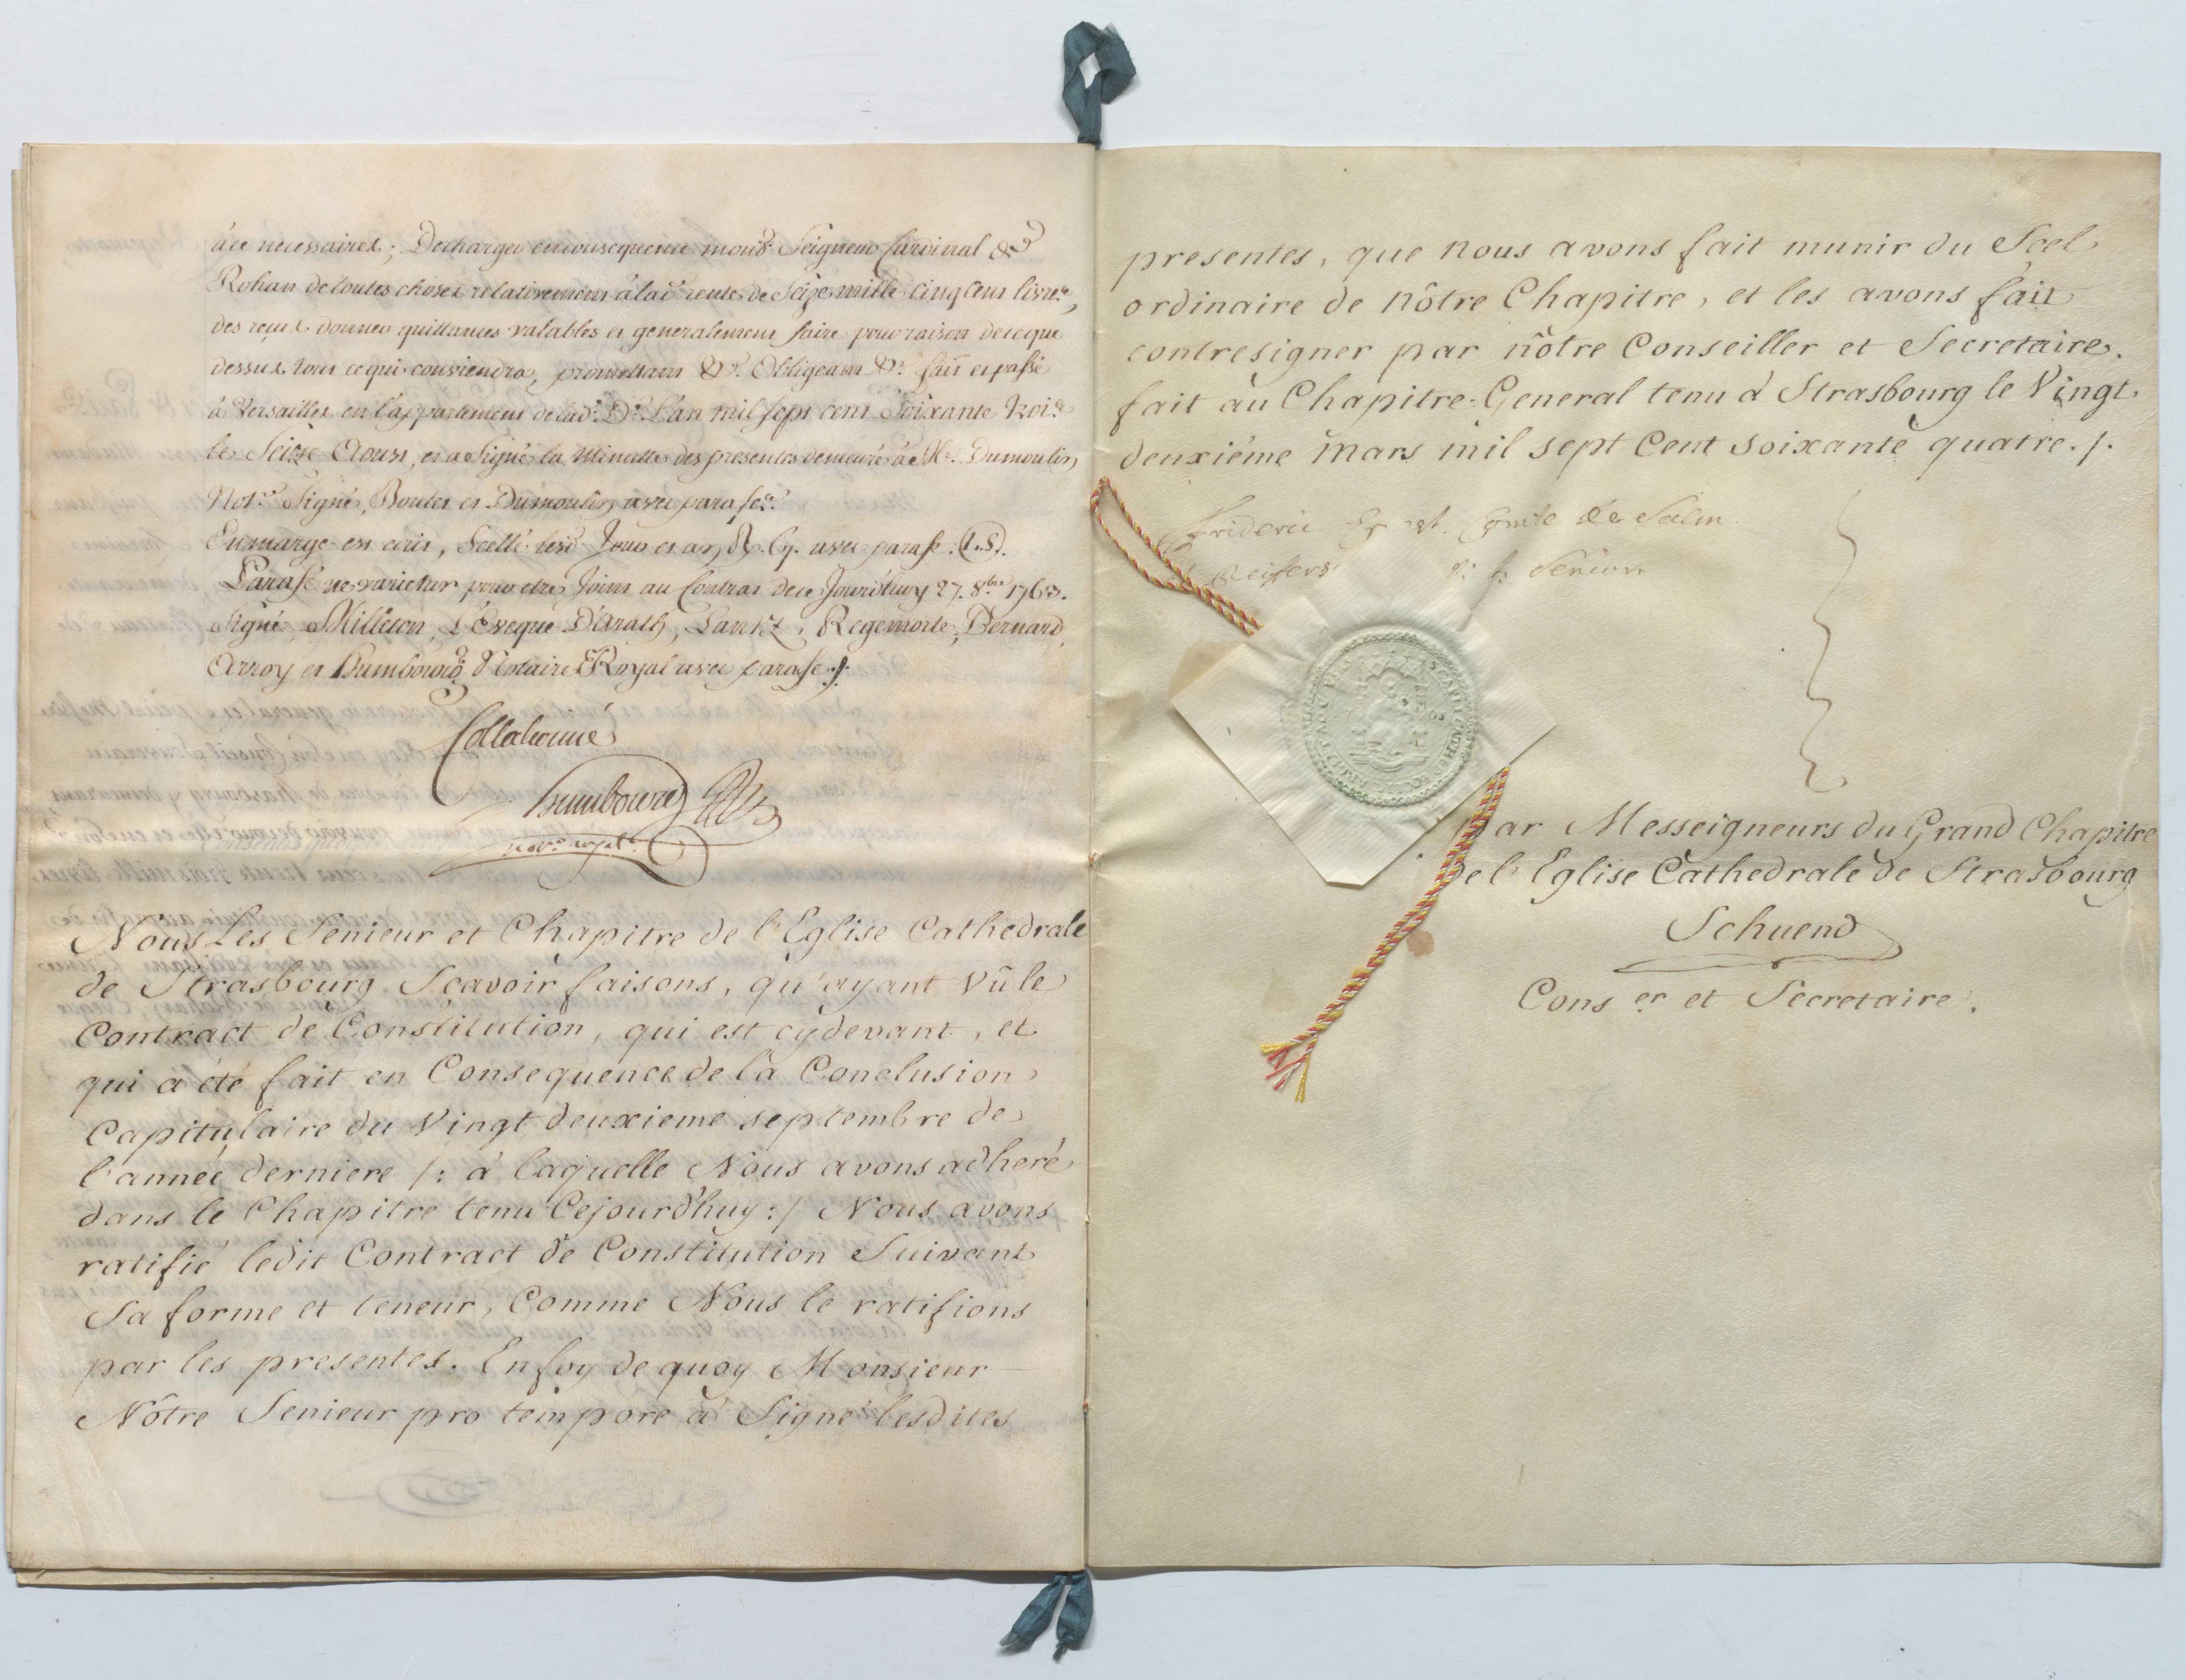 à ce necessaires; Decharger en consequence mond. Seigneur Cardinal de
Rohan de toutes choses relativement à lad. rente de Seize mille cinq cens livres,
des reçus donner quittances valables et generalement faire pour raison de ce que
dessus tout ce qui conviendra, promettant &c. Obligeant &c. fait et passé
à Versailles en l'appartement de lad. De. L'an mil sept cent Soixante trois
le Seize Aoust, et a Signé la Minutte des presentes demeurée à Me. Dumoulin
Notre. Signé, Boutet et Dumoulin avec parafes.
En marge est ecrit, Scellé lesd. Jour et an, avec parafe. (L.S).
Parafé ne varietur pour etre Joint au Contrat de ce Jourd'huy 27. 8bre 1763.
Signé Milleton, L'Eveque D'arath, Lantz, Regemorte, Bernard,
Arroy et Humbourg Notaire Royal avec parafe ./.
Collationné
Humbourg
notre. royal
Nous Les Senieur et Chapitre de l'Eglise Cathedrale
de Strasbourg Sçavoir faisons, qu'ayant Vû le
Contract de Constitution, qui est cydevant, et
qui à été fait en Consequence de la Conclusion
Capitulaire du Vingt deuxieme septembre de
l'année derniere /: à laquelle Nous avons adheré
dans le Chapitre tenu Cejourd'huy :/ Nous avons
ratifié ledit Contract de Constitution Suivant
Sa forme et teneur, Comme Nous le ratifions
par les presentes. En foy de quoy Monsieur
Nôtre Senieur pro tempore à Signé lesdites
presentes, que nous avons fait munir du Scel
ordinaire de nôtre Chapitre, et les avons fait
contresigner par nôtre Conseiller et Secretaire.
fait au Chapitre-General tenu à Strasbourg le Vingt
deuxiéme Mars mil sept Cent soixante quatre ./.
Frideric Comte de Salm
Reifers Senior
par Messeigneurs du Grand Chapitre
de l'Eglise Cathedrale de Strasbourg
Schuend
Cons er et Secretaire.